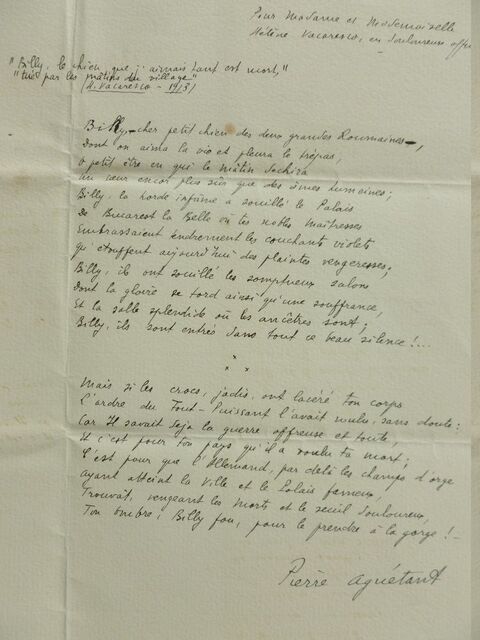 Pour Madame et Mademoiselle
Hélène Vacaresco, en douloureuse
"Billy, le chien que j'aimais tant est mort,"
"tué par les mâtins du village"
(H. Vacaresco - 1913)
Billy, cher petit chien des deux grandes Roumaines,
Dont on aima la vie et pleura le trépas,
O petit être en qui le mâtin déchira
Un cœur encor plus sûr que des âmes humaines;
Billy, la horde infâme a souillé le Palais
De Bucarest la Belle où tes nobles maîtresses
Embrassaient tendrement les couchants violets
Qu'étouffent aujourd'hui des plaintes vengeresses;
Billy, ils ont souillé les somptueux salons
Dont la gloire se tord ainsi qu'une souffrance,
Et la salle splendide où les ancêtres sont;
Billy, ils sont entrés dans tout ce beau silence!...
x
x x
Mais si les crocs, jadis, ont lacéré ton corps
L'ordre du Tout-Puissant l'avait voulu, sans doute:
Car Il savait déjà la guerre affreuse et toute,
Et c'est pour ton pays qu'il a voulu ta mort;
C'est pour que l'Allemand, par delà les champs d'orge
ayant atteint la Ville et le Palais fameux,
Trouvât, vengeant les Morts et le seuil douloureux,
Ton ombre, Billy fou, pour le prendre à la gorge!-
Pierre Aguétant